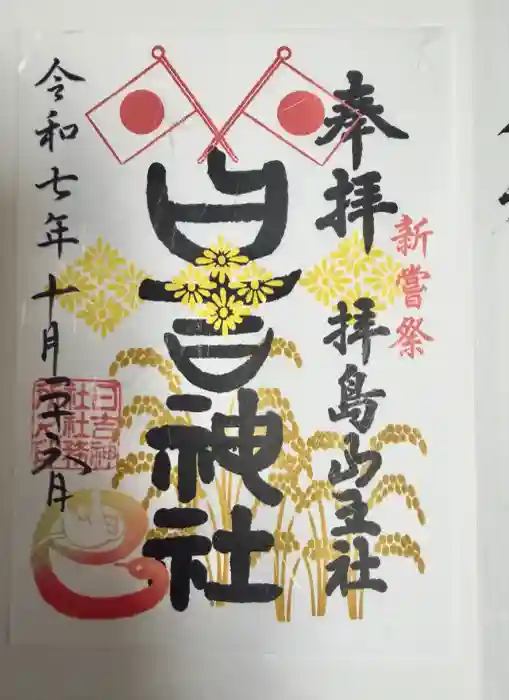 奉拝
新嘗祭
拝島山王社
日吉神社
令和七年十月二十六日
日吉神社社務所之印